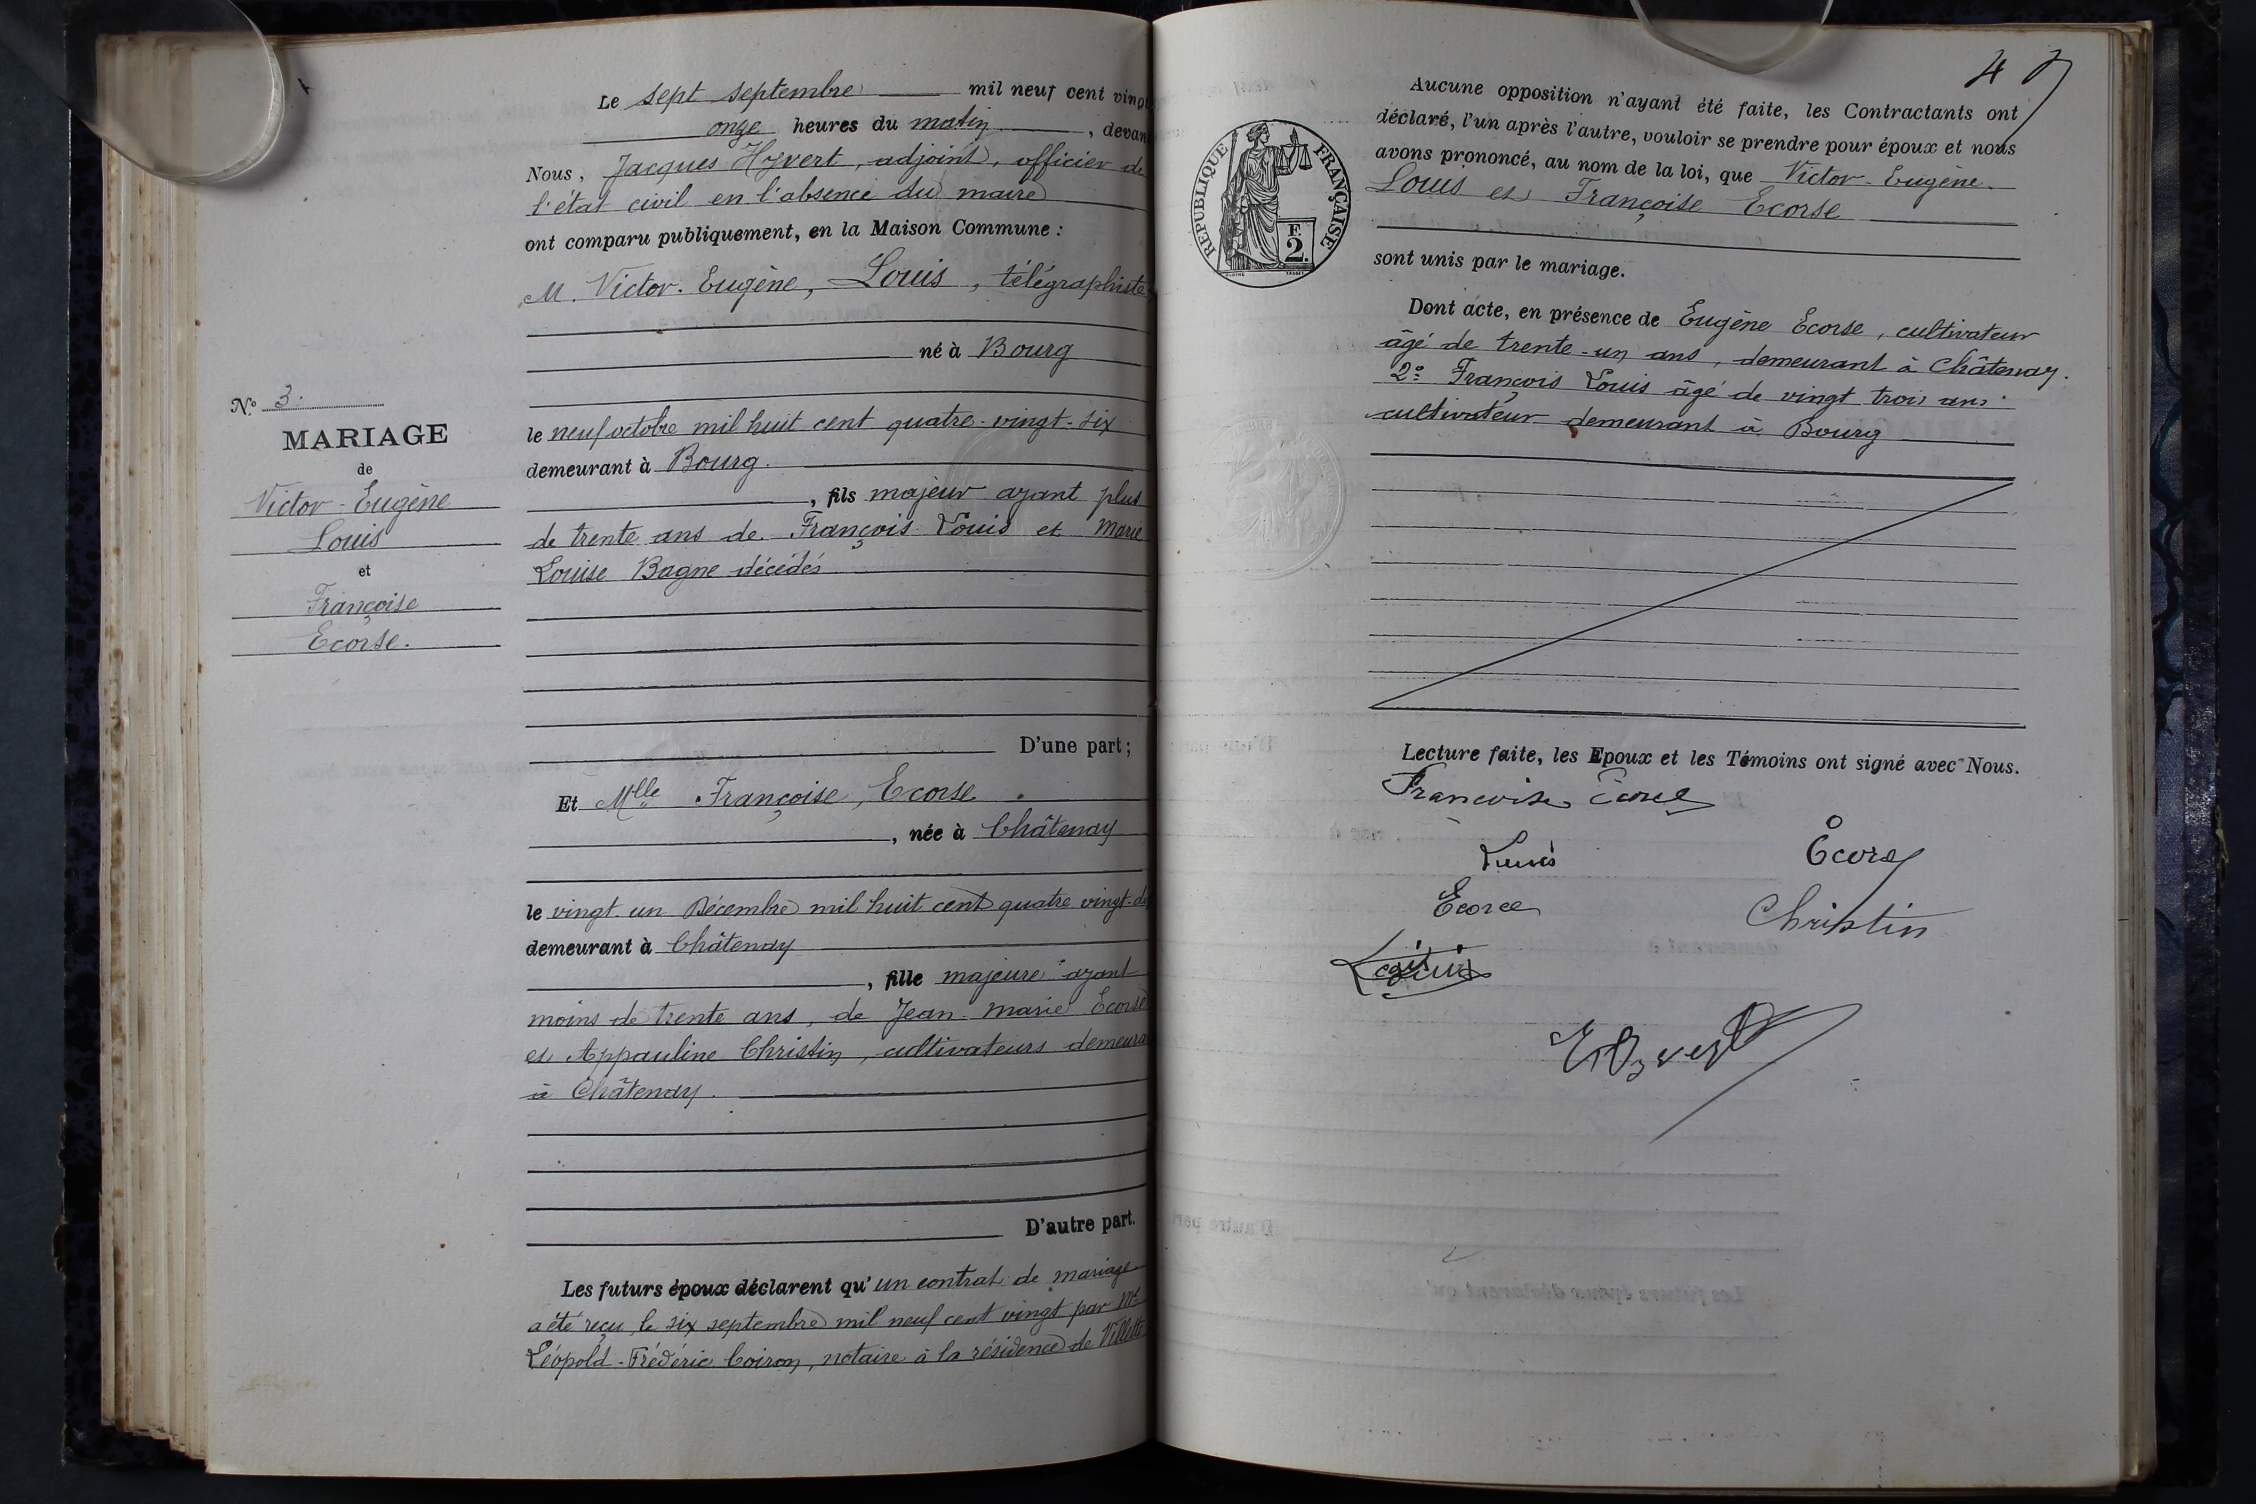 Le sept septembre mil neuf cent vingt
onze heures du matin, devant
Nous, Jacques Hyvert, adjoint, officier de
l'état civil en l'absence du maire
ont comparu publiquement, en la Maison Commune :
M. Victor-Eugène, Louis, télégraphiste
né à Bourg
le neuf octobre mil huit cent quatre-vingt-six
demeurant à Bourg.
, fils majeur ayant plus
de trente ans de François Louis et Marie
Louise Bagne décédés
D'une part ;
Et Mlle Françoise, Ecorse.
, née à Châtenay
le vingt un Décembre mil huit cent quatre vingt-
demeurant à Châtenay
, fille majeure ayant
moins de trente ans, de Jean-Marie Ecorse
et Appauline Christin, cultivateurs
à Châtenay.
D'autre part.
Les futurs époux déclarent qu'un contrat de mariage
a été reçu le six septembre mil neuf cent vingt par Me
Léopold-Frédéric Coiron, notaire à la résidence de Villette
No 3.
MARIAGE
de
Victor-Eugène
Louis
et
Françoise
Ecorse.
Aucune opposition n'ayant été faite, les Contractants ont
déclaré, l'un après l'autre, vouloir se prendre pour époux et nous
avons prononcé, au nom de la loi, que Victor-Eugène
Louis et Françoise Ecorse
sont unis par le mariage.
Dont acte, en présence de Eugène Ecorse, cultivateur
âgé de trente-un ans, demeurant à Châtenay.
2° François Louis âgé de vingt trois ans
cultivateur demeurant à Bourg
Lecture faite, les Epoux et les Témoins ont signé avec Nous.
Françoise Ecorse
Louis
Ecorse
Christin
Hyvert
RÉPUBLIQUE FRANÇAISE
F.
2.